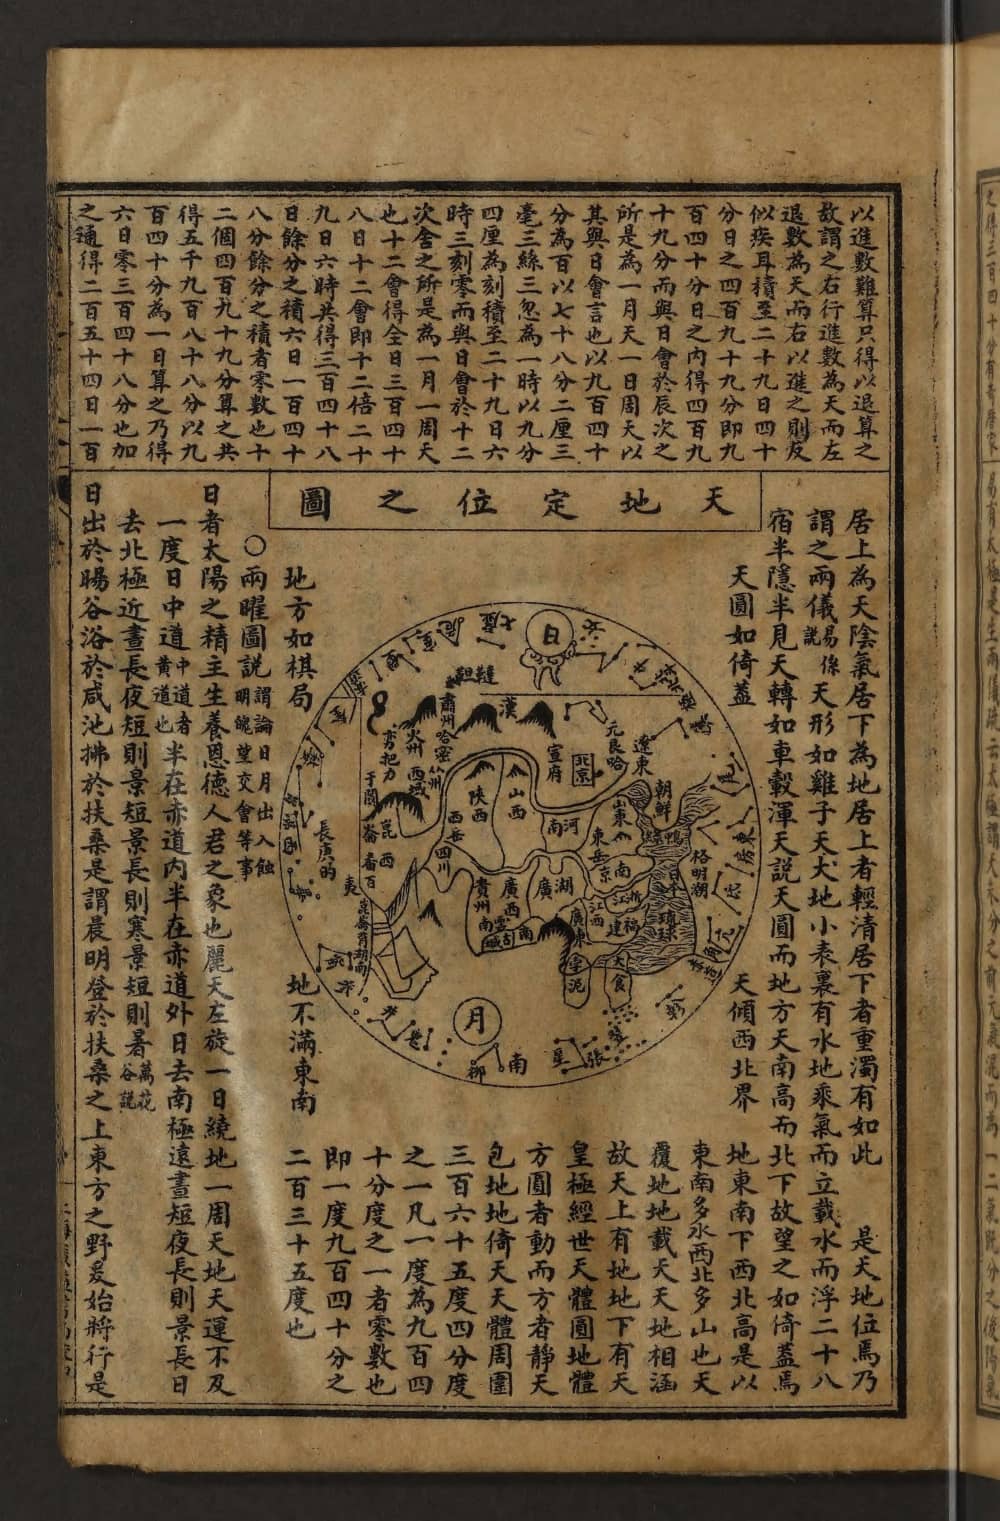 以進數難算只得以退算之
故謂之右行進數為天而左
退數為天而右以進之則反
似疾耳積至二十九日四十
分日之四百九十九分即九
百四十分日之內得四百九
十九分而與日會於辰次之
所是為一月天一日周天以
其與日會言也以九百四十
分為百以七十八分二厘三
毫三絲三忽為一時以九分
四厘為刻積至二十九日六
時三刻零而與日會於十二
次舍之所是為一月一周天
也十二會得全日三百四十
八日十二會即十二倍二十
九日六時共得三百四十八
日餘分之積六日一百四十
八分餘分之積者零數也十
二個四百九十九分算之共
得五千九百八十八分以九
百四十分為一日算之乃得
六日零三百四十八分也加
之通得二百五十四日一百
天地定位之圖
居上為天陰氣居下為地居上者輕清居下者重濁有如此 是天地位焉乃
謂之兩儀易係說天形如雞子天大地小表裏有水地乘氣而立載水而浮二十八
宿半隱半見天轉如車轂渾天說天圓而地方天南高而北下故望之如倚蓋焉
天圓如倚蓋
天傾西北界
地東南下西北高是以
東南多水西北多山也天
覆地地載天天地相涵
故天上有地地下有天
皇極經世天體圓地體
方圓者動而方者靜天
包地地倚天天體周圍
三百六十五度四分度
之一凡一度為九百四
十分度之一者零數也
即一度九百四十分之
二百三十五度也
地方如棋局
地不滿東南
日
月
韃靼
漢
肅州
哈密
火州
西域
于闐
崑崙
西番
宣府
北京
元良哈
遼東
朝鮮
山東
陝西
山西
河南
西岳
四川
東岳
南京
浙江
江西
湖廣
廣西
貴州
雲南
福建
廣東
日本
琉球
大食
長庚的
格明湖
南
星
張
柳
〇兩曜圖說謂論日月出入蝕
明魄望交會等事
日者太陽之精主生養恩德人君之象也麗天左旋一日繞地一周天地天運不及
一度日中道中道者黃道也半在赤道內半在赤道外日去南極遠晝短夜長則景長日
去北極近晝長夜短則景短景長則寒景短則暑萬花谷說
日出於暘谷浴於咸池拂於扶桑是謂晨明登於扶桑之上東方之野爰始將行是